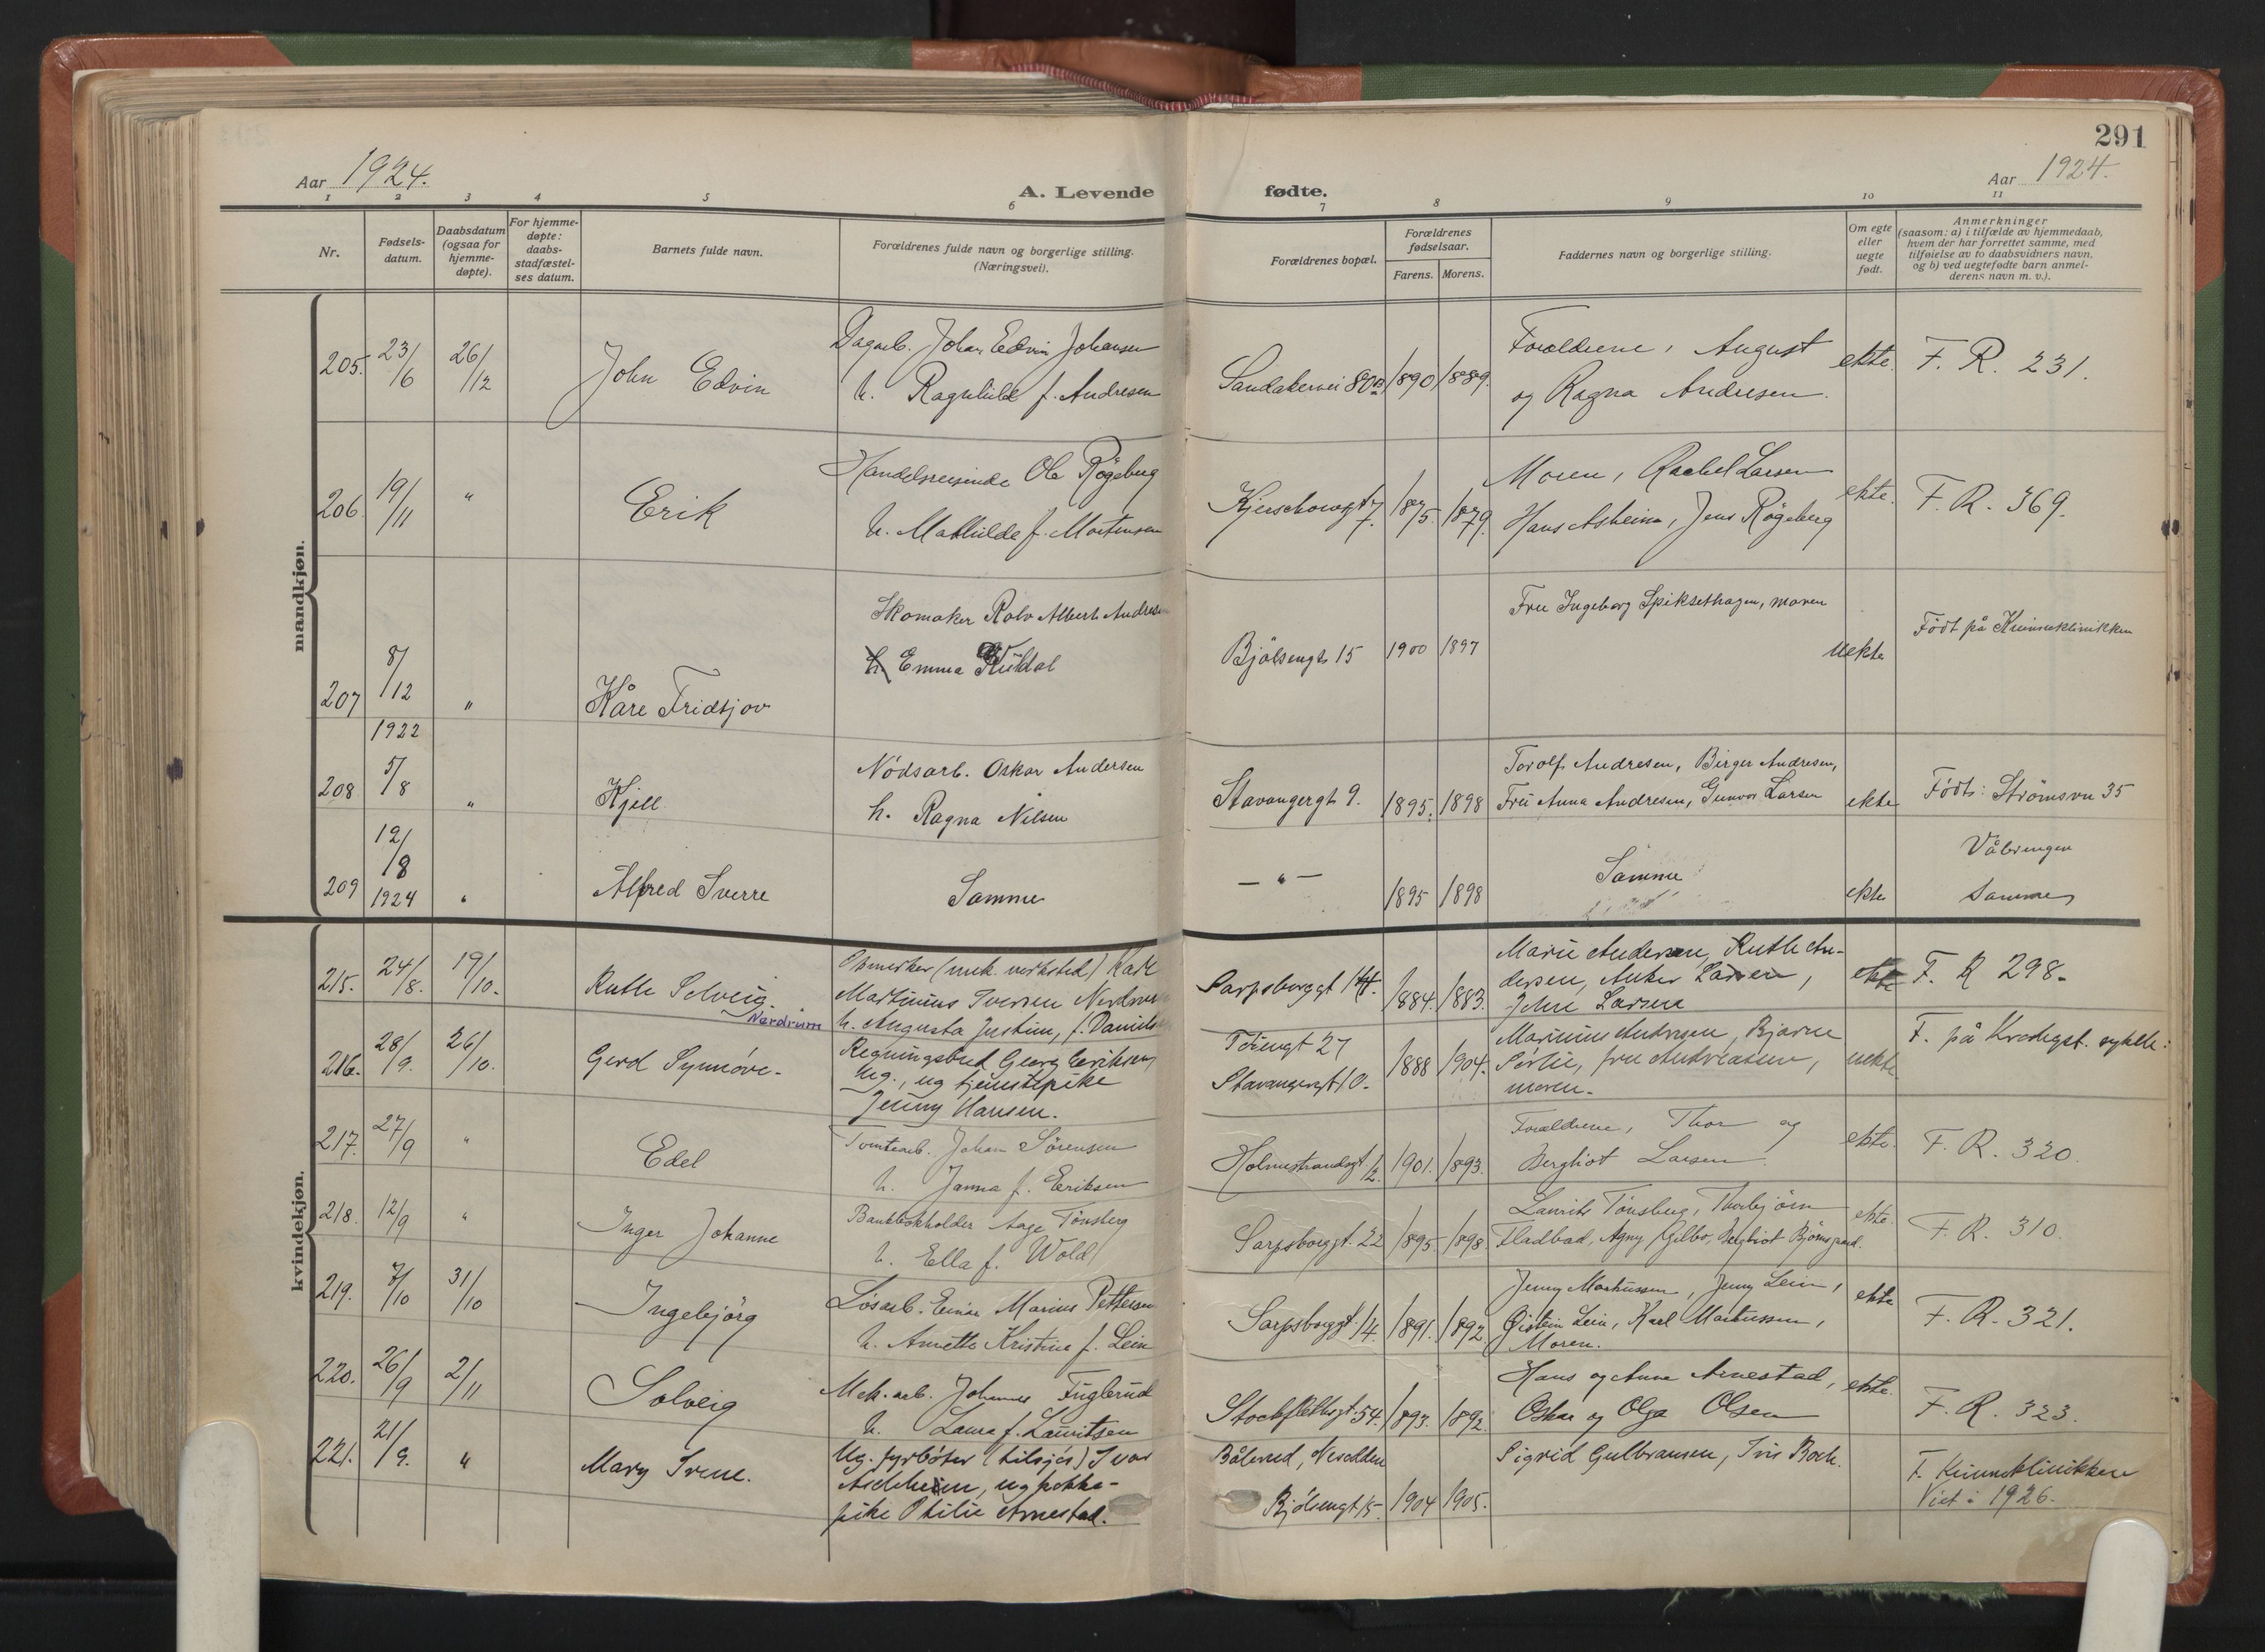 291
Aar 1924.
A. Levende fødte.
Aar 1924.
1 2 3 4 5 6 7 8 9 10 11
Nr.
Fødsels-
datum.
Daabsdatum
(ogsaa for
hjemme-
døpte).
For hjemme-
døpte:
daabs-
stadfæstel-
ses datum.
Barnets fulde navn.
Forældrenes fulde navn og borgerlige stilling.
(Næringsvei).
Forældrenes bopæl.
Forældrenes
fødselsaar.
Farens. Morens.
Faddernes navn og borgerlige stilling.
Om egte
eller
uegte
født.
Anmerkninger
(saasom: a) i tilfælde av hjemmedaab,
hvem der har forrettet samme, med
tilføielse av to daabsvidners navn,
og b) ved uegtefødte barn anmel-
derens navn m. v.).
mandkjøn.
205. 23/6 26/12
John Edvin
Dagarb. Johan Edvin Johansen
h. Ragnhild f. Andresen
Sandakervei 80B 1890 1889.
Forældrene, August
og Ragna Andresen.
ekte. F. R. 231.
206. 19/11 "
Erik
Handelsreisende Ole Røgeberg
h. Mathilde f. Mortensen
Kjerschowsgt 7. 1875. 1879.
Moren, Rachel Larsen
Hans Asheim, Jens Røgeberg
ekte. F. R. 369.
207 8/12 "
Kåre Fridtjov
Skomaker Rolv Albert Andresen
h. Emma
Bjølsengt 15 1900 1897
Fru Ingeborg Spiksethagen, moren
Uekte
Född på Kvinneklinikken
1922
208 5/8 "
Kjell
Nødsarb. Oskar Andersen
h. Ragna Nilsen
Stavangergt 9. 1895. 1898
Torolf Andresen, Birger Andresen,
Fru Anna Andresen, Gunvor Larsen
ekte
Födt: Strömsvn 35
Vålerengen
209 12/8 1924 "
Alfred Sverre
Samme
— " — 1895 1898
Samme
ekte Samme
kvindekjøn.
215. 24/8. 19/10.
Ruth Solveig.
Nordrum
Opmerker (mek. verksted) Karl
Martinius Iversen Nordrum
h. Augusta Justine, f. Daniels
Sarpsborggt 14. 1884. 1883.
Marie Andersen, Ruth An-
dersen, Anker Larsen,
John Larsen
ekte F. R 298.
216. 28/9. 26/10.
Gerd Synnøve.
Regningsbud Georg Eriksen,
ug., ug tjenestepike
Jenny Hansen.
27
Stavangergt 10. 1888 1904.
Marinius Andresen, Bjarne
Sørlie, fru Andreasen,
moren.
uekte
F. på Krohgst. sykeh:
217. 27/9 "
Edel
Tomtearb. Johan Sörensen
h. Janna f. Eriksen
Holmestrandsgt 1/2 1901. 1893.
Forældrene, Thor og
Bergliot Larsen.
ekte. F. R. 320.
218. 12/9 "
Inger Johanne
Bankbokholder Aage Tönsberg
h. Ella f. Wold
Sarpsborggt. 22 1895 1898.
Laurits Tønsberg, Thorbjørn
Fladbad, Agny Gilbo, Bergliot Björnsgaard.
ekte. F. R. 310.
219. 7/10 31/10
Ingebjörg
Løsarb. Einar Marius Pettersen
h. Annette Kristine f. Lein
Sarpsborggt. 14. 1891. 1892.
Jenny Markussen, Jenny Lein,
Øistein Lein, Karl Markussen,
Moren.
ekte F. R. 321.
220. 26/9 2/11
Solveig
Mek. arb. Johannes Fuglerud
h. Laura f. Lauritsen
Stockflethsgt. 54. 1893. 1892.
Hans og Anna Arnestad,
Oskar og Olga Olsen
ekte. F. R. 323.
221. 21/9. "
Mary Irene.
Ug. fyrbøter (tilsjös) Ivar
Aschheim, ug kokke-
pike Otilie Arnestad.
Bålerud, Nesodden
Bjølsengt 15. 1904 1905.
Sigrid Gulbransen, Iris Bock.
F. Kvinneklinikken
Viet i 1926.